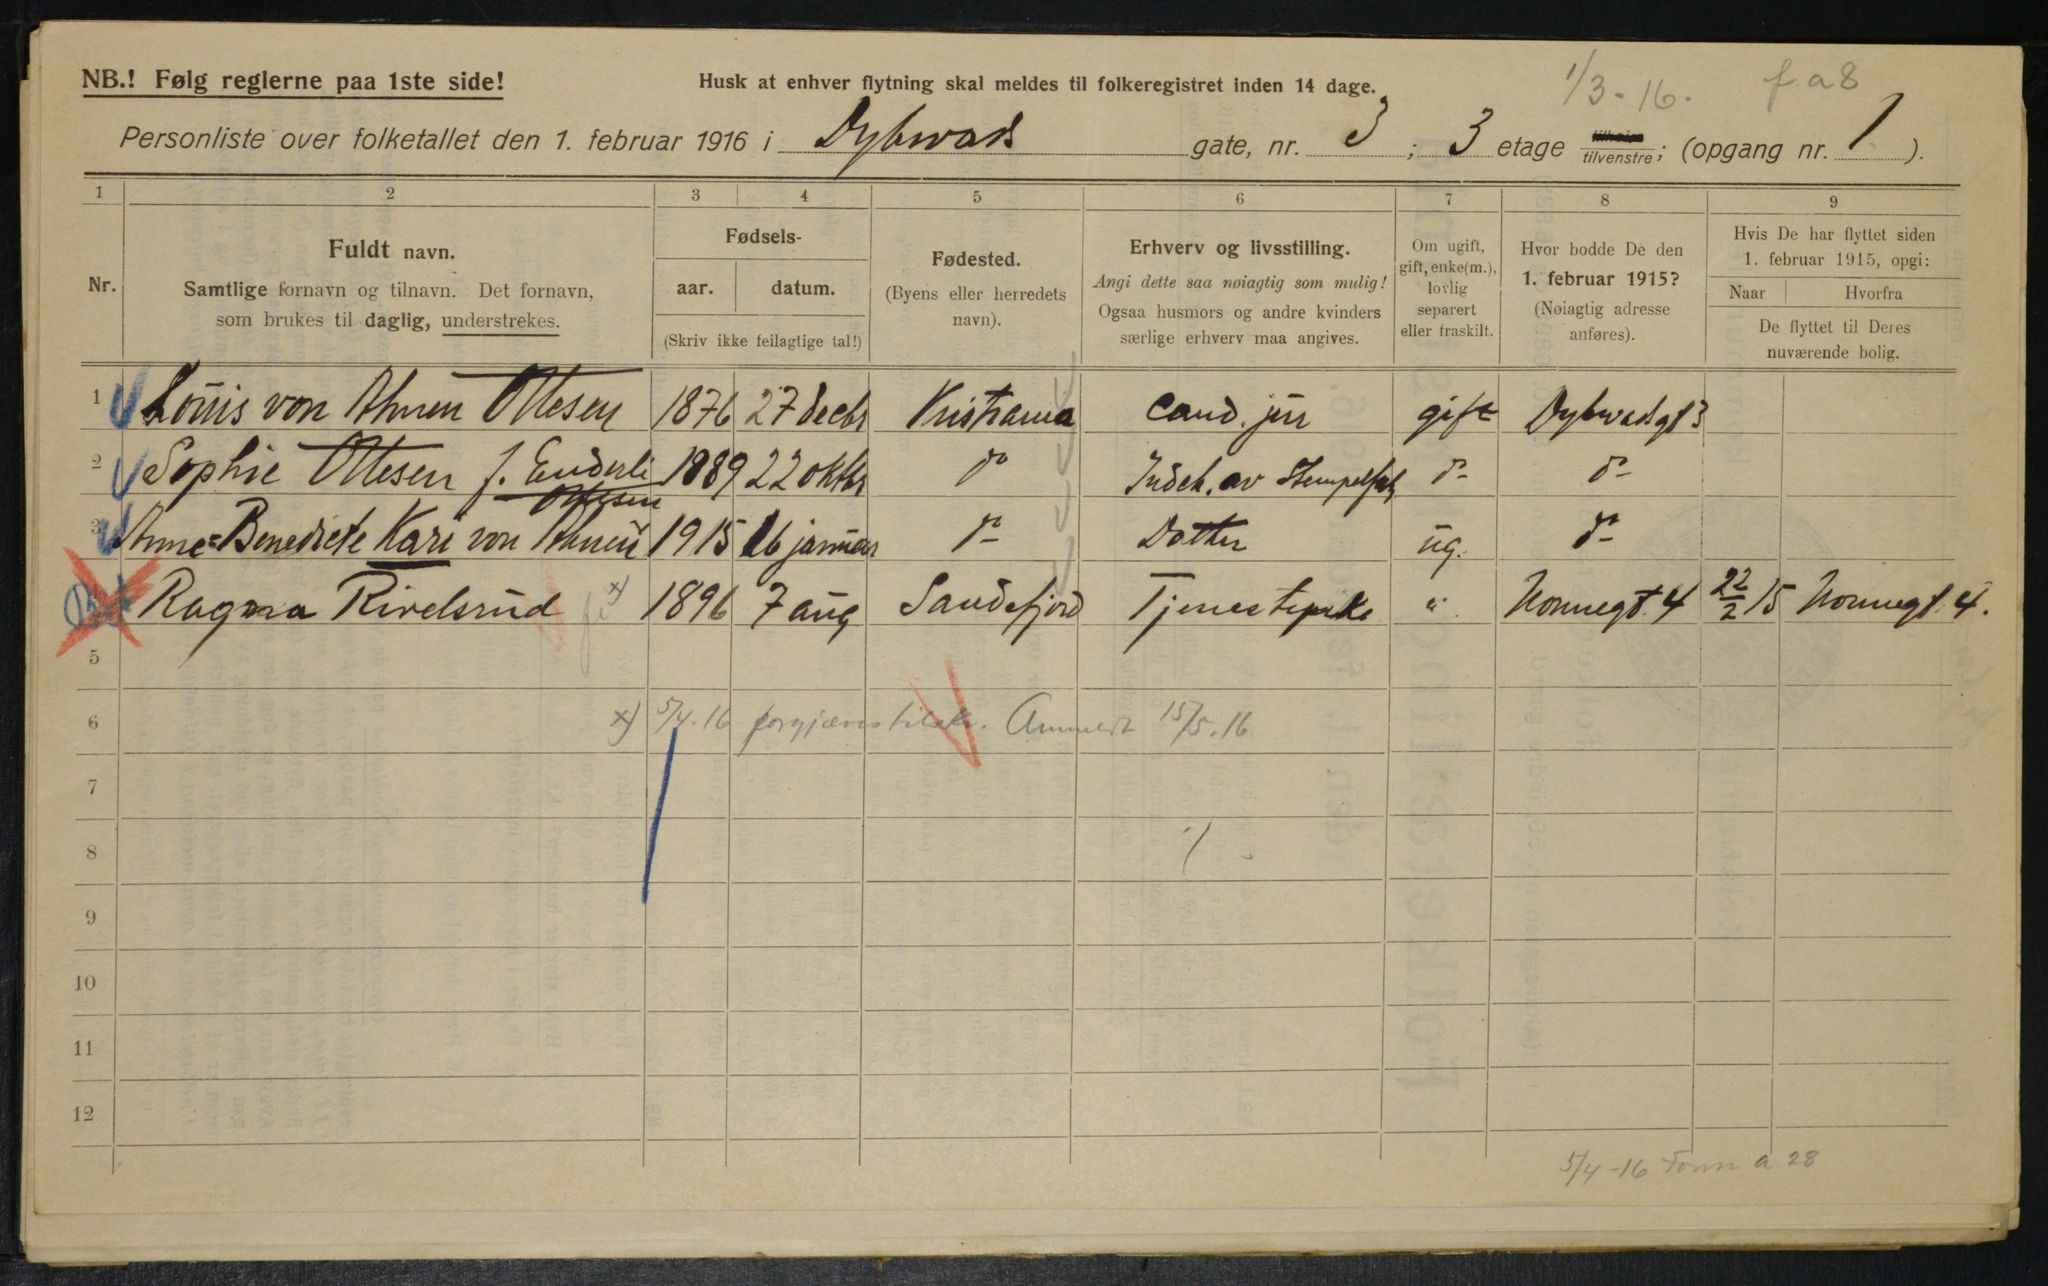 1/3-16. f. a 8
NB.! Følg reglerne paa 1ste side! Husk at enhver flytning skal meldes til folkeregistret inden 14 dage.
Personliste over folketallet den 1. februar 1916 i Dybwads gate, nr. 3; 3 etage tilhøire tilvenstre; (opgang nr. 1).
1 2 3 4 5 6 7 8 9
Nr.
Fuldt navn.
Samtlige fornavn og tilnavn. Det fornavn,
som brukes til daglig, understrekes.
Fødsels-
aar. datum.
(Skriv ikke feilagtige tal!)
Fødested.
(Byens eller herredets
navn).
Erhverv og livsstilling.
Angi dette saa nøiagtig som mulig!
Ogsaa husmors og andre kvinders
særlige erhverv maa angives.
Om ugift,
gift, enke(m.),
lovlig
separert
eller fraskilt.
Hvor bodde De den
1. februar 1915?
(Nøiagtig adresse
anføres).
Hvis De har flyttet siden
1. februar 1915, opgi:
Naar Hvorfra
De flyttet til Deres
nuværende bolig.
1 Louis von Ahnen Ottesen 1876 27 decbr Kristiania Cand. jur gift Dybwadsgt 3
2 Sophie Ottesen f. Enderle 1889 22 oktbr do Indeh. av Stempelfab do do
Ottesen
3 Anne-Benedicte Kari von Ahnen 1915 16 januar do Datter ug. do
Ragna Rivelsrud x) 1896 7 aug Sandefjord Tjenestepike " Nonnegt. 4 22/2 15 Nonnegt. 4.
5
6 x) 5/4.16 forgjæves tilsk. Anmeldt 15/5.16
7
8
9
10
11
12
5/4-16 Form a 28